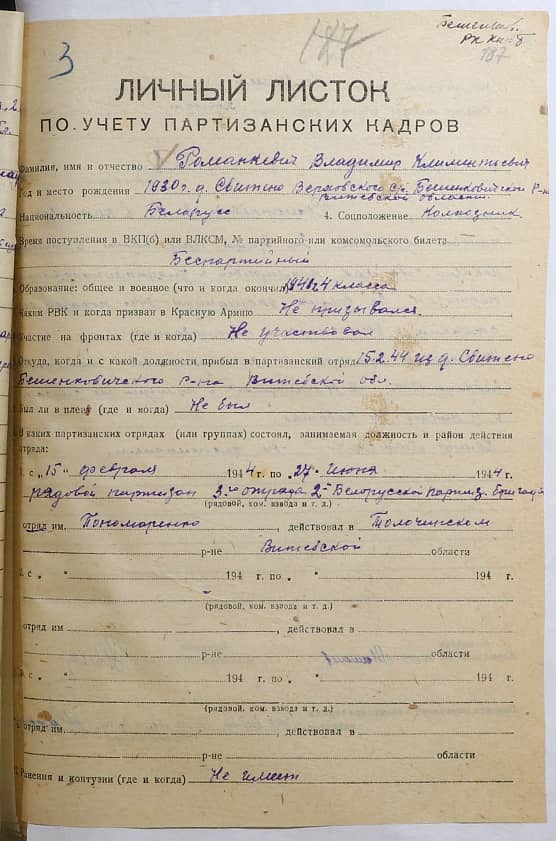 127
3
187
ЛИЧНЫЙ ЛИСТОК
ПО УЧЕТУ ПАРТИЗАНСКИХ КАДРОВ
Фамилия, имя и отчество Романкевич Владимир Климентьевич
Год и место рождения 1930 г. д. Свитено Верховского с/с Бешенковичской р-на
Витебской области.
Национальность Беларус 4. Соцположение Колхозник
Время поступления в ВКП(б) или ВЛКСМ, № партийного или комсомольского билета
Беспартийный
Образование: общее и военное (что и когда окончил) 1940 г. 4 класса
Каким РВК и когда призван в Красную Армию Не призывался.
Участие на фронтах (где и когда) Не участвовал
Откуда, когда и с какой должности прибыл в партизанский отряд 15.2.44 из д. Свитено
Бешенковичского р-на Витебской обл.
Был ли в плену (где и когда) Не был
В каких партизанских отрядах (или группах) состоял, занимаемая должность и район действия
отряда:
1. с „15" февраля 1944 г. по „27" июня 1944 г.
рядовой партизан 3-го отряда 2-й Белорусской партиз. бригады
(рядовой, ком. взвода и т. д.)
отряд им. Пономаренко, действовал в Толочинском
р-не Витебской области
2. с „ " 194 г. по „ " 194 г.
(рядовой, ком. взвода и т. д.)
отряд им, действовал в
р-не области
3. с „ " 194 г. по „ " 194 г.
(рядовой, ком. взвода и т. д.)
отряд им., действовал в
р-не области
Ранения и контузии (где и когда) Не имеет